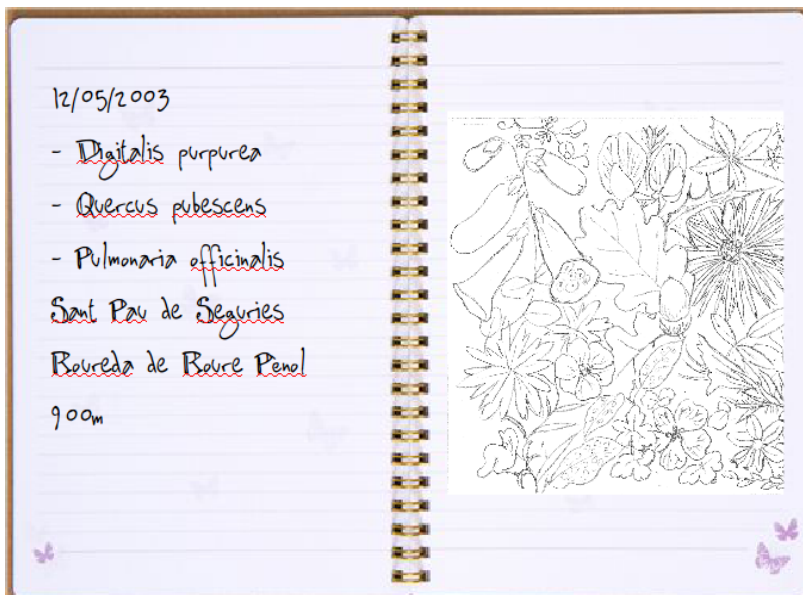 12/05/2003
- Digitalis purpurea
- Quercus pubescens
- Pulmonaria officinalis
Sant Pau de Seguries
Roureda de Roure Penol
900m